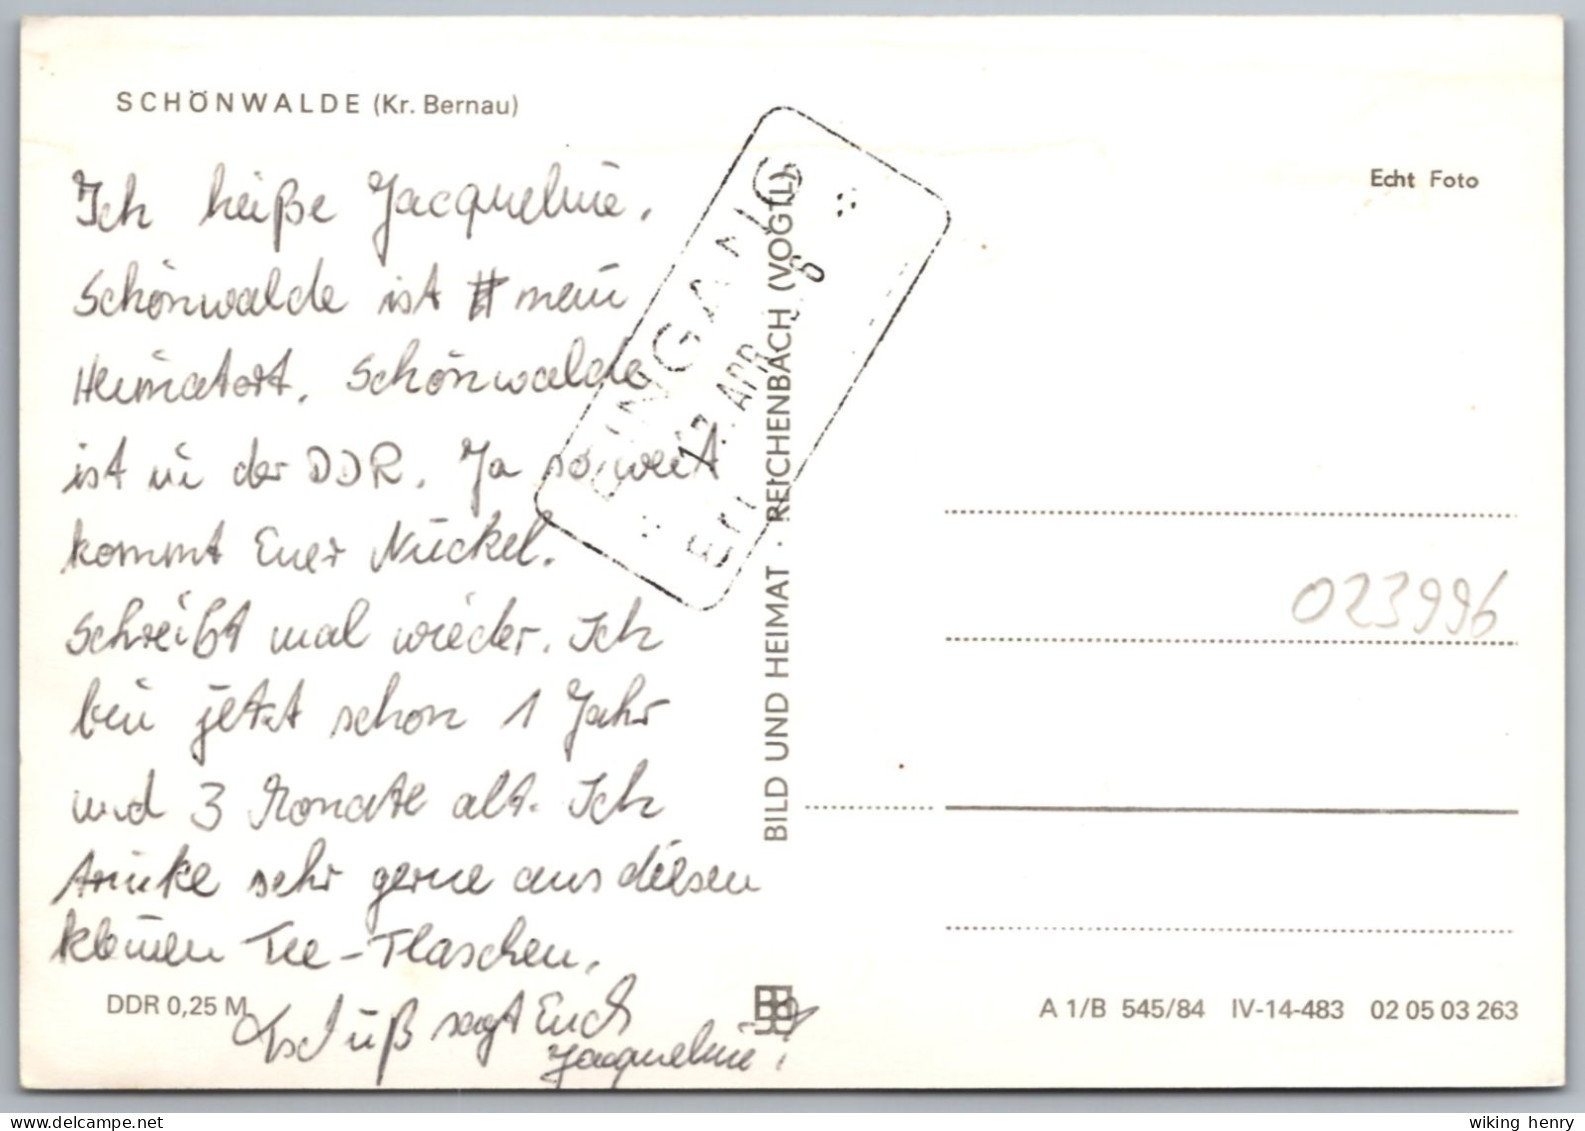 SCHÖNWALDE (Kr. Bernau)
Ich heiße Jacqueline.
Schönwalde ist mein
Heimatort. Schönwalde
ist in der DDR. Ja soweit
kommt Euer Nuckel.
Schreibt mal wieder. Ich
bin jetzt schon 1 Jahr
und 3 Monate alt. Ich
trinke sehr gerne aus diesen
kleinen Tee-Flaschen.
Tschüß sagt Euch
Jacqueline!
DDR 0,25 M
EINGANG
17. APR.
Erl.
BILD UND HEIMAT · REICHENBACH (VOGTL)
Echt Foto
023996
A 1/B 545/84 IV-14-483 02 05 03 263
www.delcampe.net
wiking henry